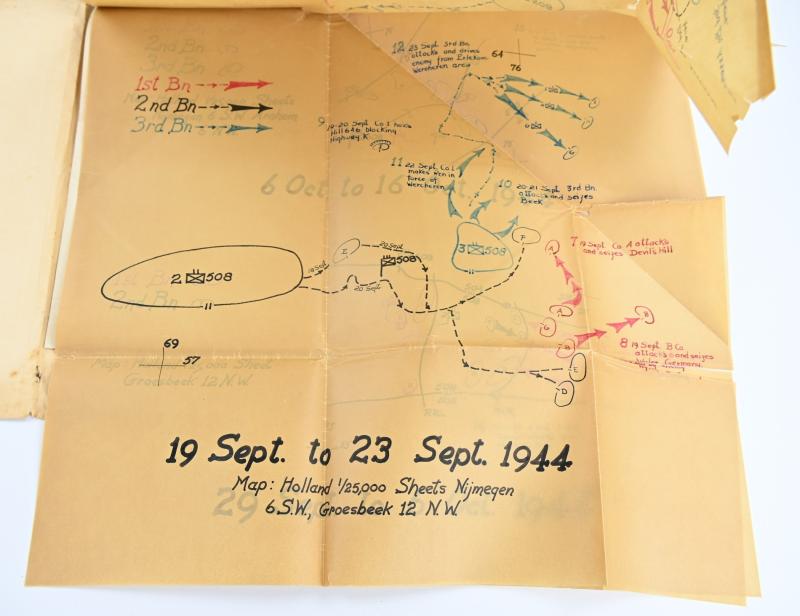 1st Bn
2nd Bn
3rd Bn
12 23 Sept. 3rd Bn.
attacks and drives
enemy from Erlekom
Wercheren area
64
76
9 19-20 Sept Co I holds
Hill 64.6 blocking
Highway K
11 22 Sept. Co I
makes Rcn in
Force of
Wercheren
10 20-21 Sept 3rd Bn.
attacks and seizes
Beek
6 Oct. to 16 Oct. 19
7 19 Sept Co A attacks
and seizes Devil's Hill
2 508
II
19 Sept
E
20 Sept
508
20 Sept
3 508
II
F
A
A
G
B
B
E
D
8 19 Sept B Co
attacks and seizes
69
57
Groesbeek 12 N.W.
19 Sept. to 23 Sept. 1944
Map: Holland 1/25,000 Sheets Nijmegen
6 S.W., Groesbeek 12 N.W.